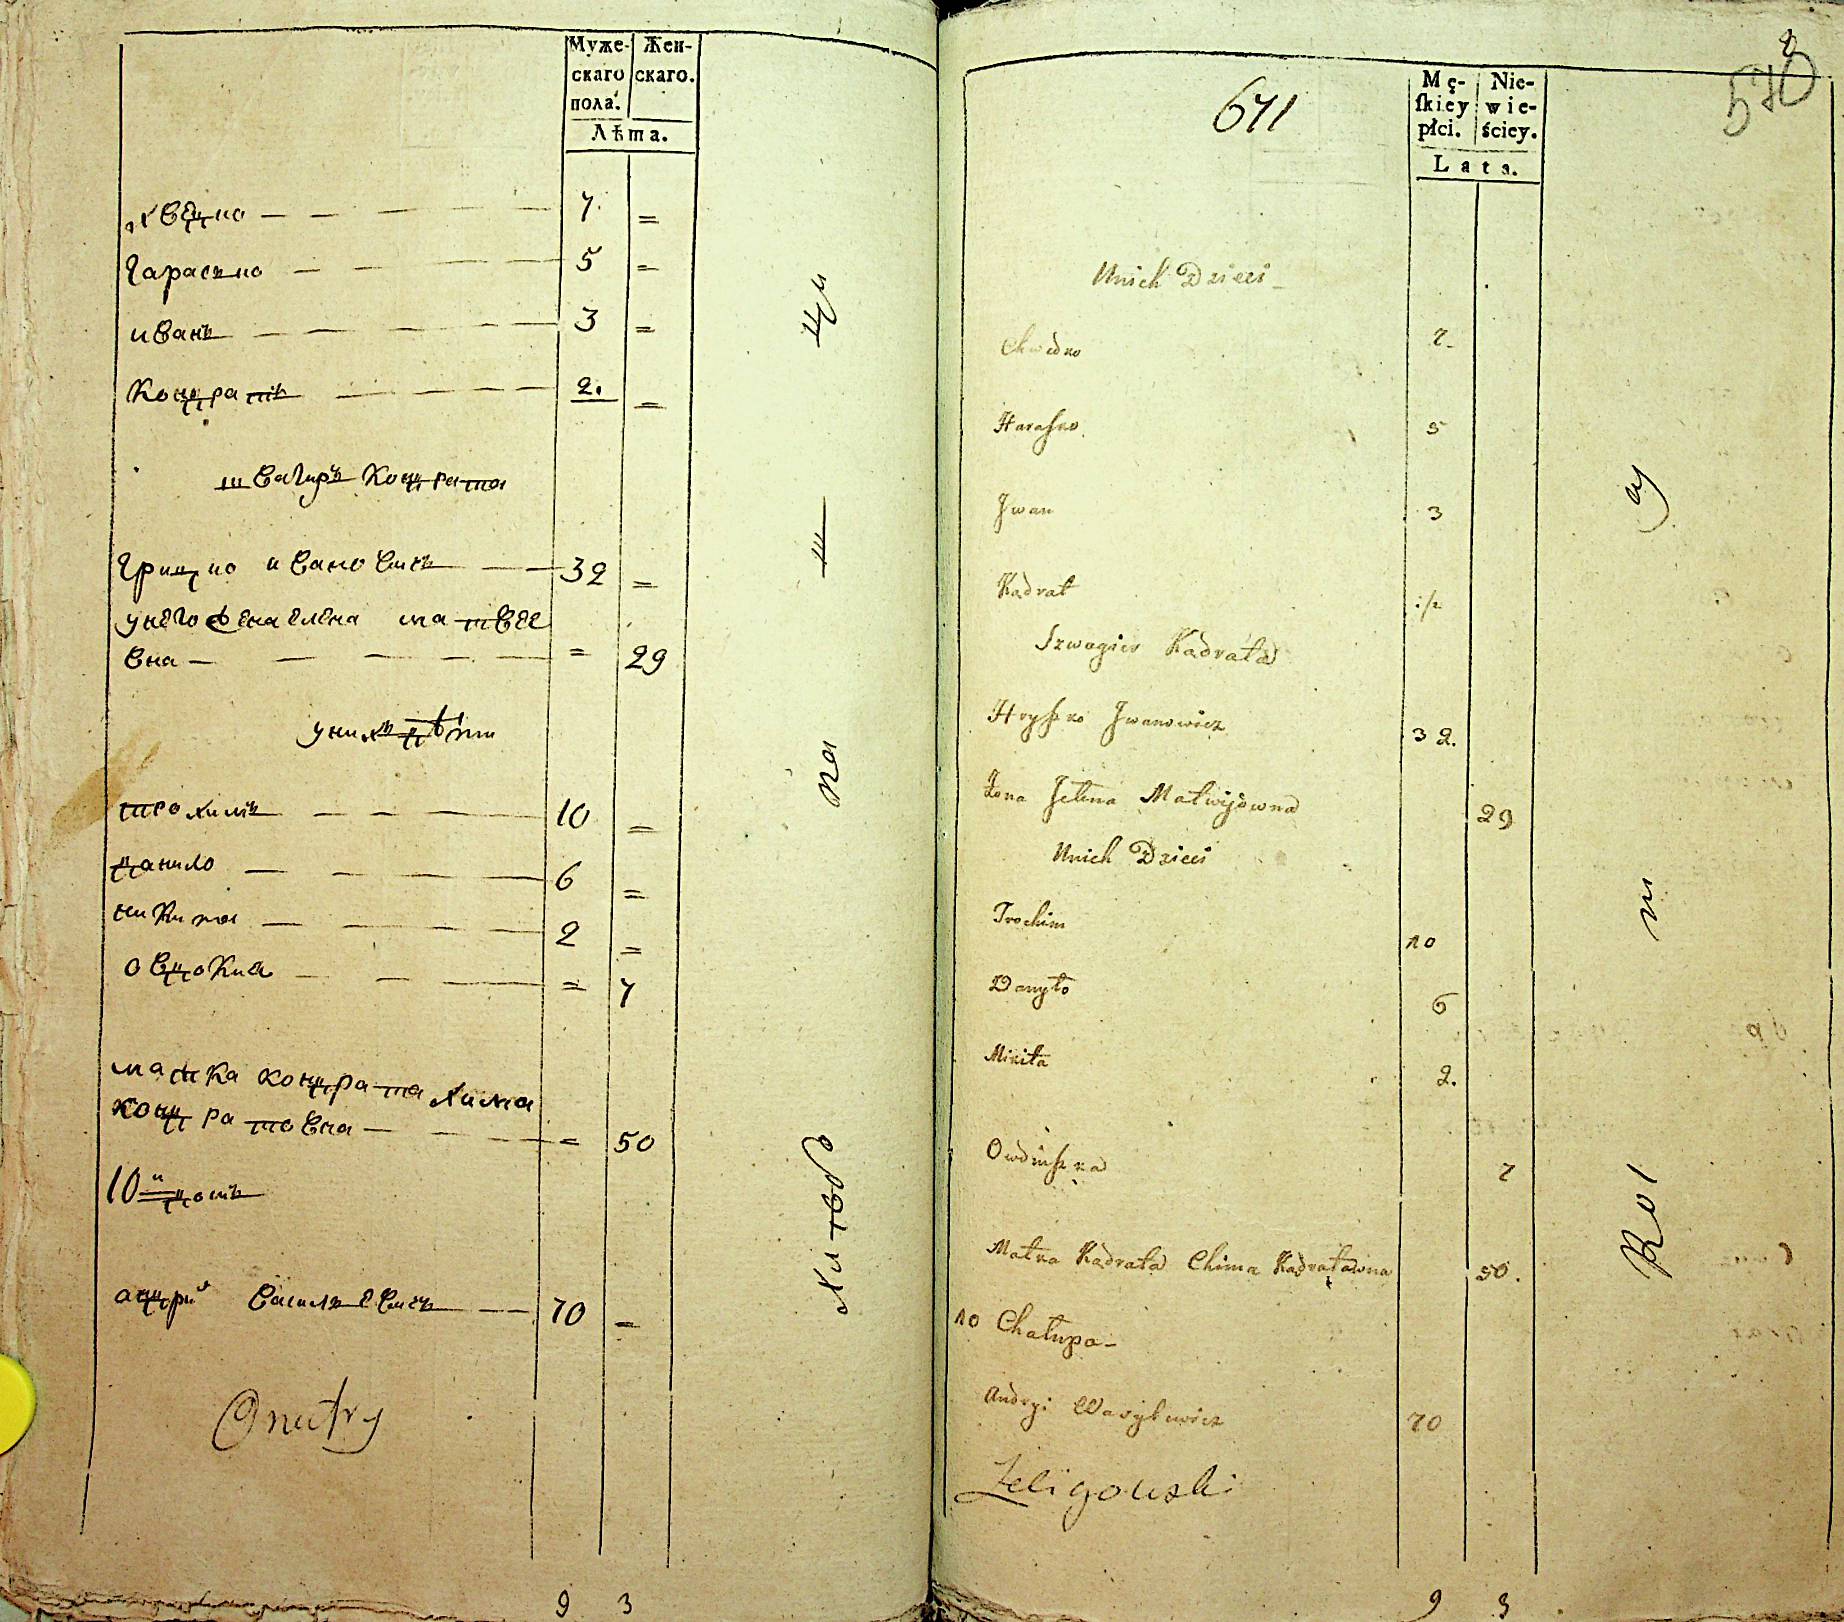 Муже- Жен-
скаго скаго.
пола.
Лѣта.
хведко 7. =
гараско 5 =
иванъ 3 =
Кондратъ 2. =
швагиръ Кондрата
грицко ивановичъ 32 =
унего жена елена матвее
вна = 29
унихъ дѣти
трохимъ 10 =
данило 6 =
никита 2 =
овдокия = 7
матка кондрата хима
кондратовна = 50
10й домъ
андрий васильевичъ 70 =
9 3
671
570
Mę- Nie-
ſkiey wie-
płci. ściey.
Lata.
Unich Dzieci
Chwedko 7
Haraſko 5
Jwan 3
Kądrat
Szwagier Kądrata
Hryſzko Jwanowicz 32.
Żona Jelina Matwijówna 29
Unich Dzieci
Trochim 10
Danyło 6
Mikita 2.
7
Matka Kądrata Chima Kądratowna 50.
10 Chałupa
Andryi Wasylewicz 70
Żeligowski
9 3